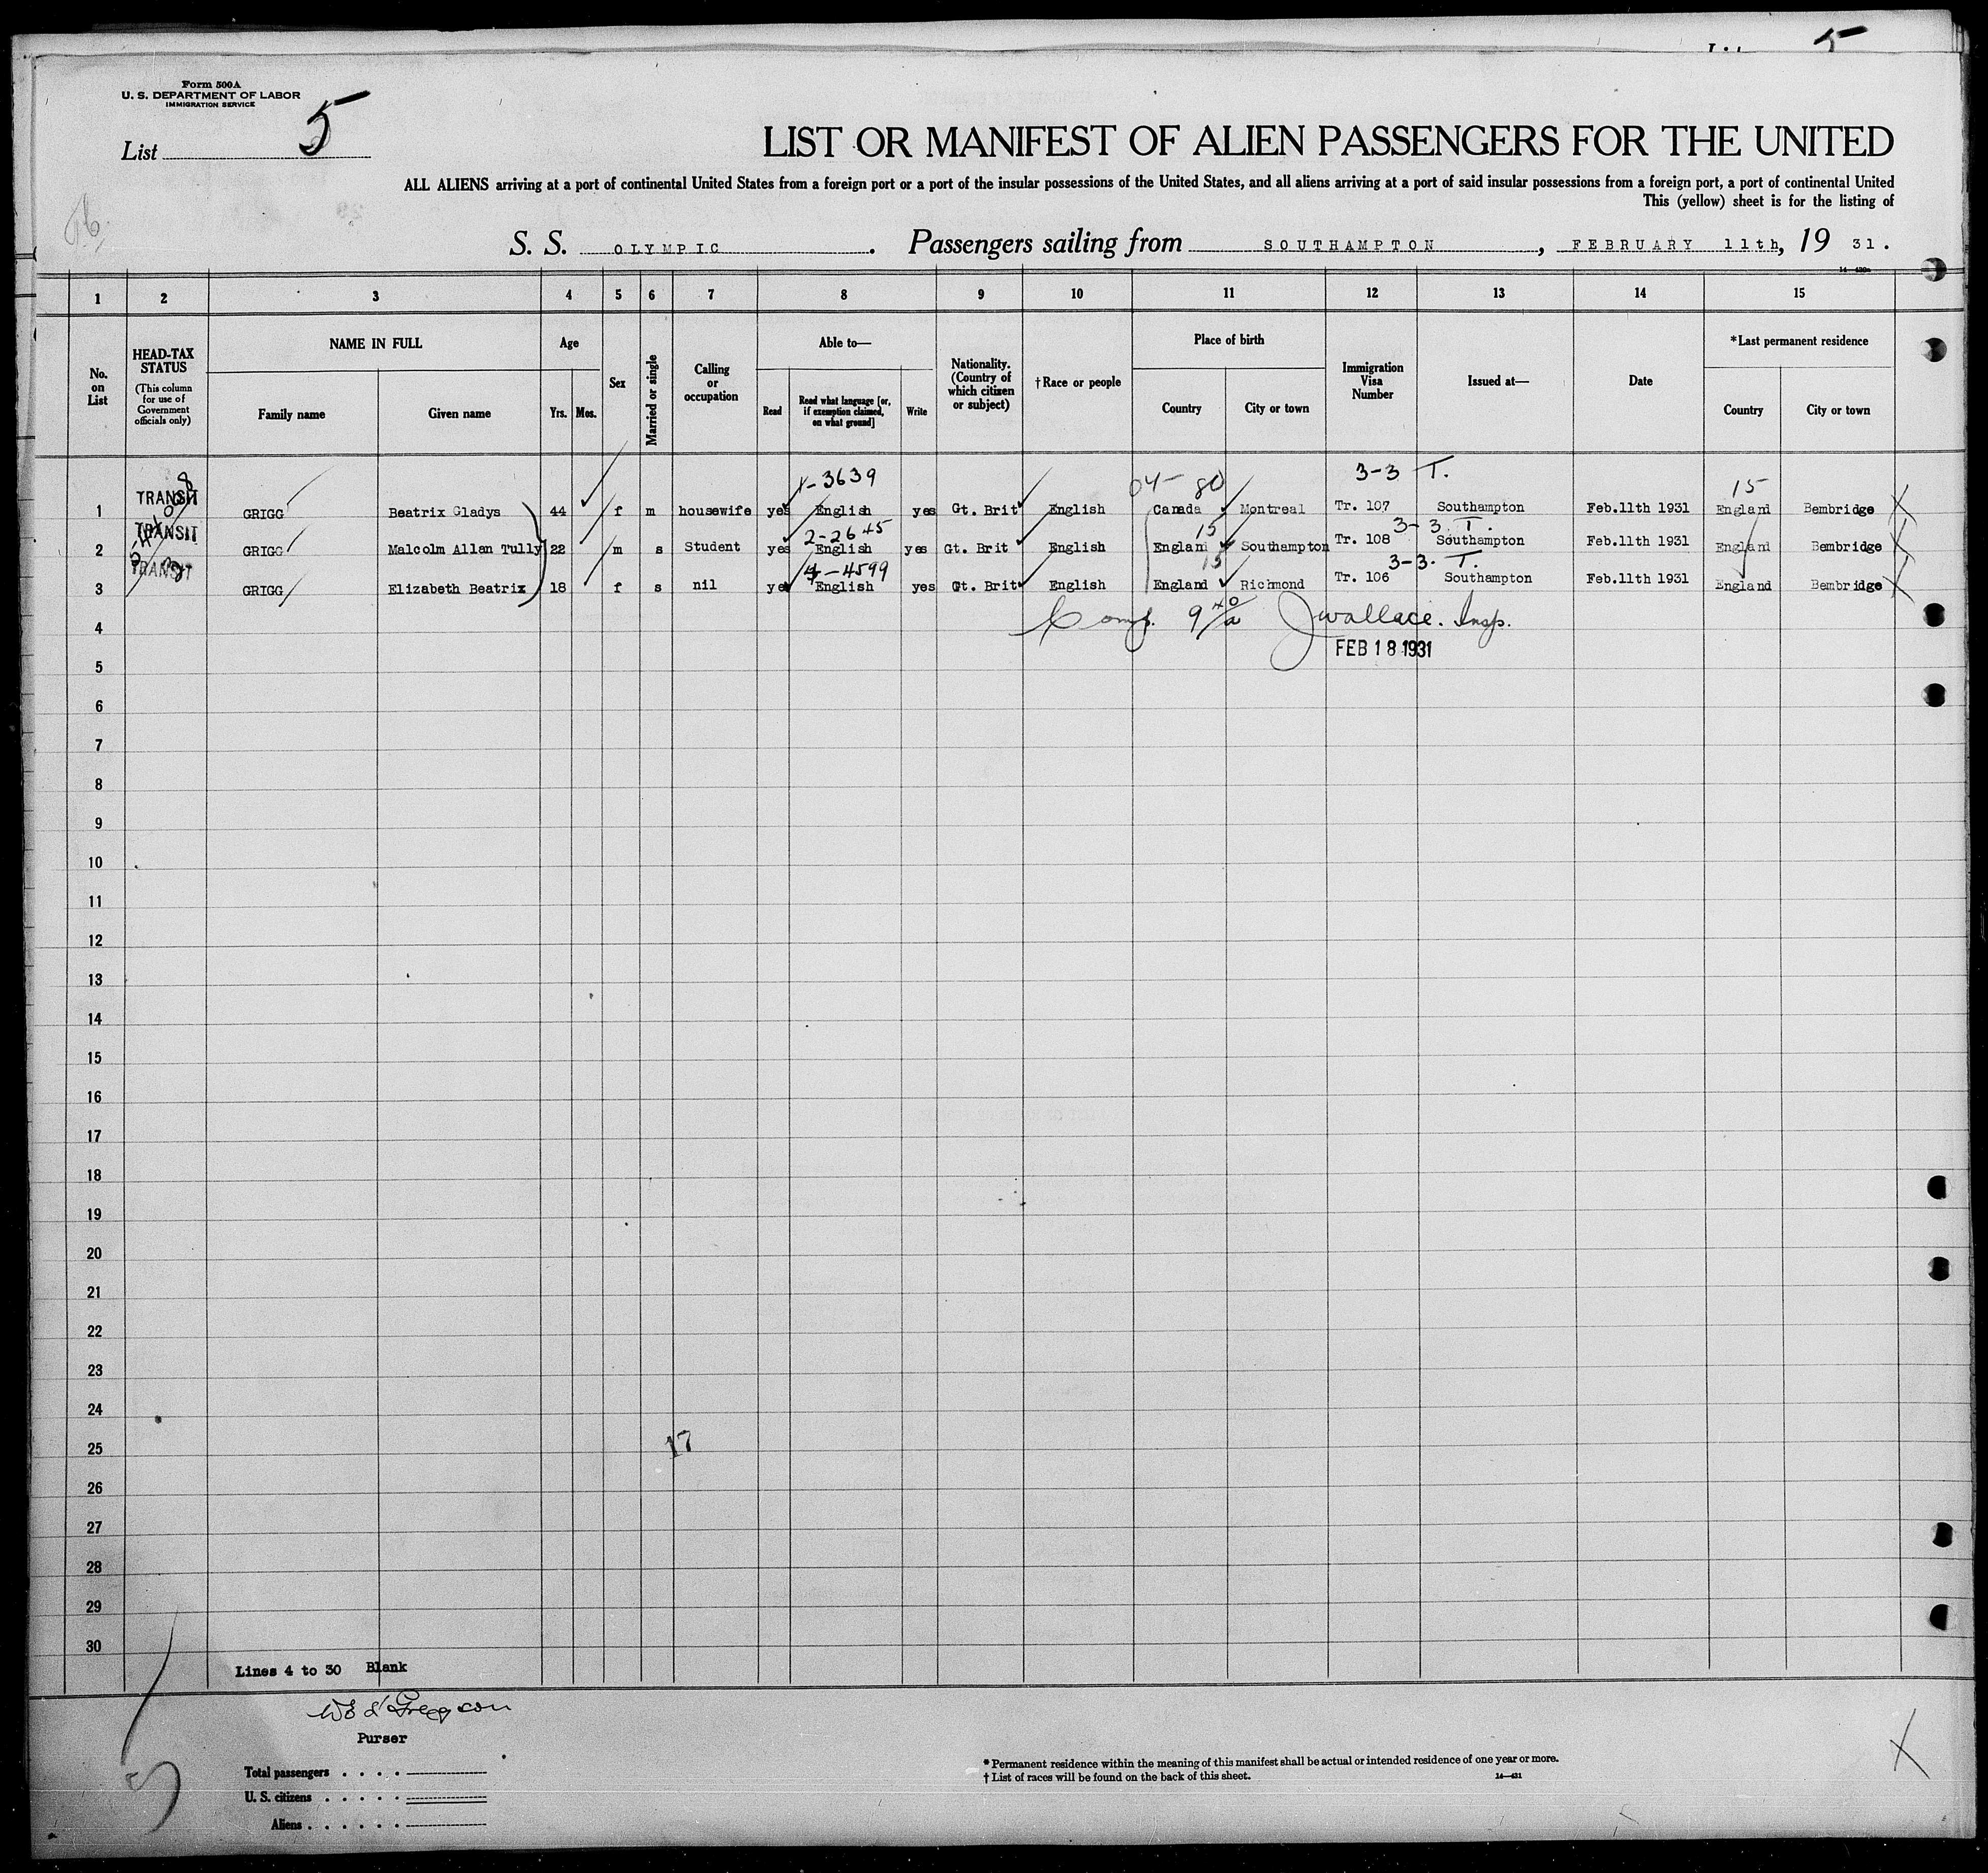 5
Form 500A
U. S. DEPARTMENT OF LABOR
IMMIGRATION SERVICE
List 5
LIST OR MANIFEST OF ALIEN PASSENGERS FOR THE UNITED
ALL ALIENS arriving at a port of continental United States from a foreign port or a port of the insular possessions of the United States, and all aliens arriving at a port of said insular possessions from a foreign port, a port of continental United
This (yellow) sheet is for the listing of
S. S. OLYMPIC. Passengers sailing from SOUTHAMPTON, FEBRUARY 11th, 19 31.
1 2 3 4 5 6 7 8 9 10 11 12 13 14 15
No. on List
HEAD-TAX STATUS
(This column for use of Government officials only)
NAME IN FULL
Family name
Given name
Age
Yrs. Mos.
Sex
Married or single
Calling or occupation
Able to—
Read
Read what language [or, if exemption claimed, on what ground]
Write
Nationality. (Country of which citizen or subject)
†Race or people
Place of birth
Country
City or town
Immigration Visa Number
Issued at—
Date
*Last permanent residence
Country
City or town
1-3639 04-80 3-3 T. 15
1 TRANSIT GRIGG Beatrix Gladys 44 f m housewife yes English yes Gt. Brit English Canada Montreal Tr. 107 Southampton Feb.11th 1931 England Bembridge
2-2645 15 3-3. T.
2 TRANSIT GRIGG Malcolm Allan Tully 22 m s Student yes English yes Gt. Brit English England Southampton Tr. 108 Southampton Feb.11th 1931 England Bembridge
4-4599 15 3-3. T.
3 TRANSIT GRIGG Elizabeth Beatrix 18 f s nil yes English yes Gt. Brit English England Richmond Tr. 106 Southampton Feb.11th 1931 England Bembridge
4 Comp. 9 40/a J Wallace. Insp.
FEB 18 1931
5
6
7
8
9
10
11
12
13
14
15
16
17
18
19
20
21
22
23
24
17
25
26
27
28
29
30
Lines 4 to 30 Blank
Purser
Total passengers . . . .
U. S. citizens . . . . .
Aliens . . . . . .
*Permanent residence within the meaning of this manifest shall be actual or intended residence of one year or more.
†List of races will be found on the back of this sheet.
14—431